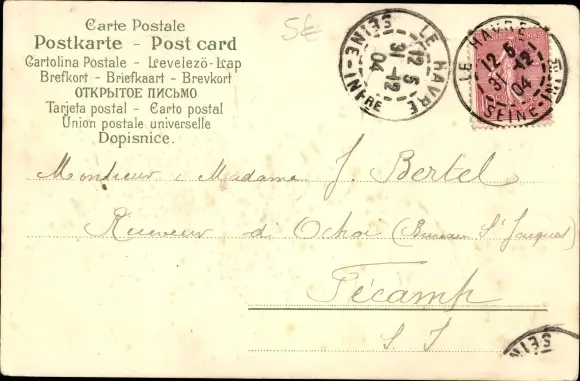 Carte Postale
Postkarte - Post card
Cartolina Postale - Levelező-Lap
Brefkort - Briefkaart - Brevkort
ОТКРЫТОЕ ПИСЬМО
Tarjeta postal - Carto postal
Union postale universelle
Dopisnice.
5€
LE HAVRE
12 5
31 -12
04
SEINE-INFRE
LE HAVRE
12 5
31 -12
04
SEINE-INF
Monsieur & Madame J. Bertel
Receveur d'Octroi (Bureau St Jacques)
Fécamp
S. I
SEIN